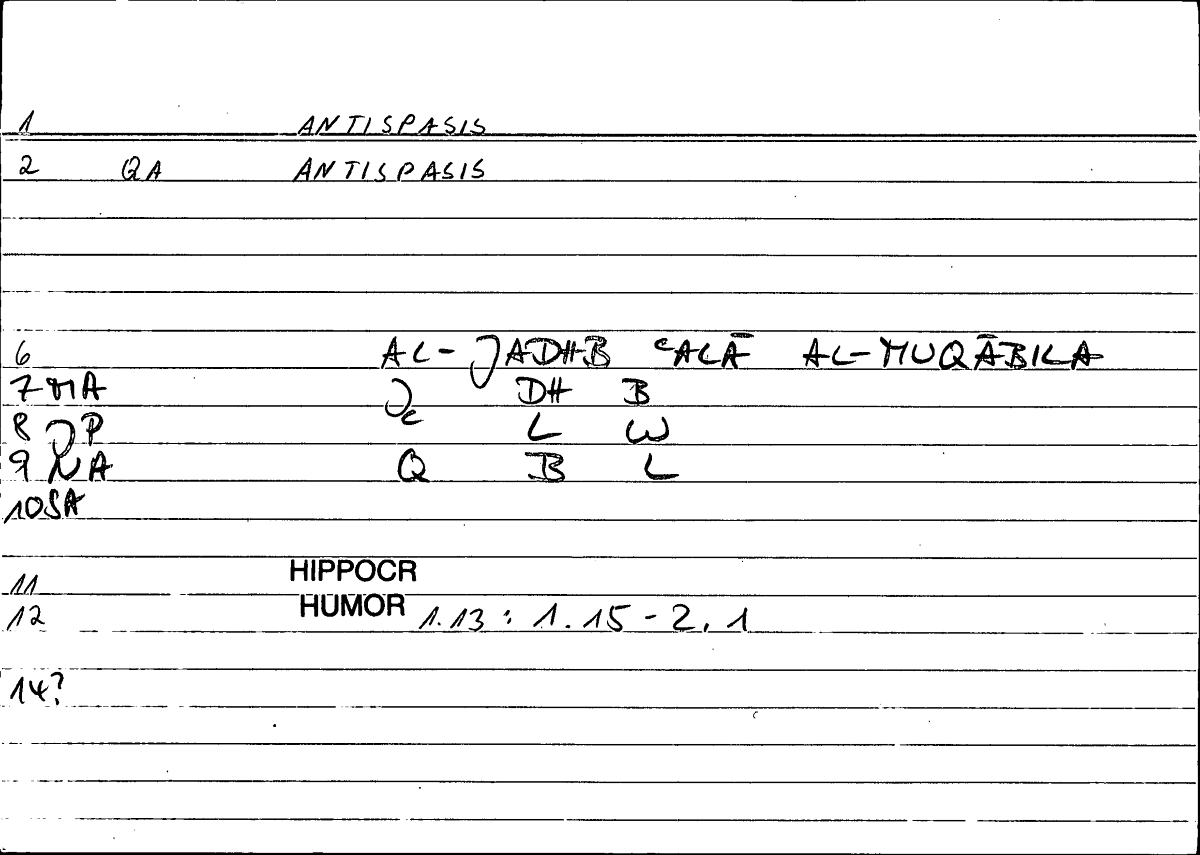 1 ANTISPASIS
2 QA ANTISPASIS
6 AL-JADHB ʿALĀ AL-MUQĀBILA
7 MA J DH B
8 JP ʿ L W
9 NA Q B L
10 SA
11 HIPPOCR
12 HUMOR 1.13 : 1.15 - 2.1
14?